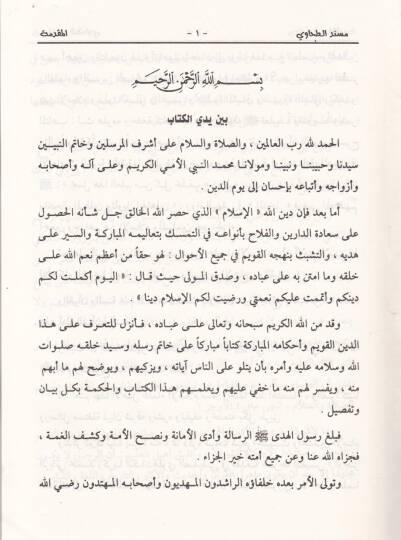 مسند الطحاوي - ١ - المقدمة
بسم الله الرحمن الرحيم
بين يدي الكتاب
الحمد لله رب العالمين ، والصلاة والسلام على أشرف المرسلين وخاتم النبيين
سيدنا وحبيبنا ونبينا ومولانا محمد النبي الأمي الكريم وعلى آله وأصحابه
وأزواجه وأتباعه بإحسان إلى يوم الدين .
أما بعد فإن دين الله « الإسلام » الذي حصر الله الخالق جل شأنه الحصول
على سعادة الدارين والفلاح بأنواعه في التمسك بتعاليمه المباركة والسير على
هديه ، والتشبث بنهجه القويم في جميع الأحوال : لهو حقاً من أعظم نعم الله على
خلقه وما امتن به على عباده ، وصدق المولى حيث قال : « اليوم أكملت لكم
دينكم وأتممت عليكم نعمتي ورضيت لكم الإسلام دينا » .
وقد من الله الكريم سبحانه وتعالى على عباده ، فأنزل للتعرف على هذا
الدين القويم وأحكامه المباركة كتاباً مباركاً على خاتم رسله وسيد خلقه صلوات
الله وسلامه عليه وأمره بأن يتلو على الناس آياته ، ويزكيهم ، ويوضح لهم ما أبهم
منه ، ويفسر لهم منه ما خفي عليهم ويعلمهم هذا الكتاب والحكمة بكل بيان
وتفصيل .
فبلغ رسول الهدى ﷺ الرسالة وأدى الأمانة ونصح الأمة وكشف الغمة ،
فجزاه الله عنا وعن جميع أمته خير الجزاء .
وتولى الأمر بعده خلفاؤه الراشدون المهديون وأصحابه المهتدون رضي الله